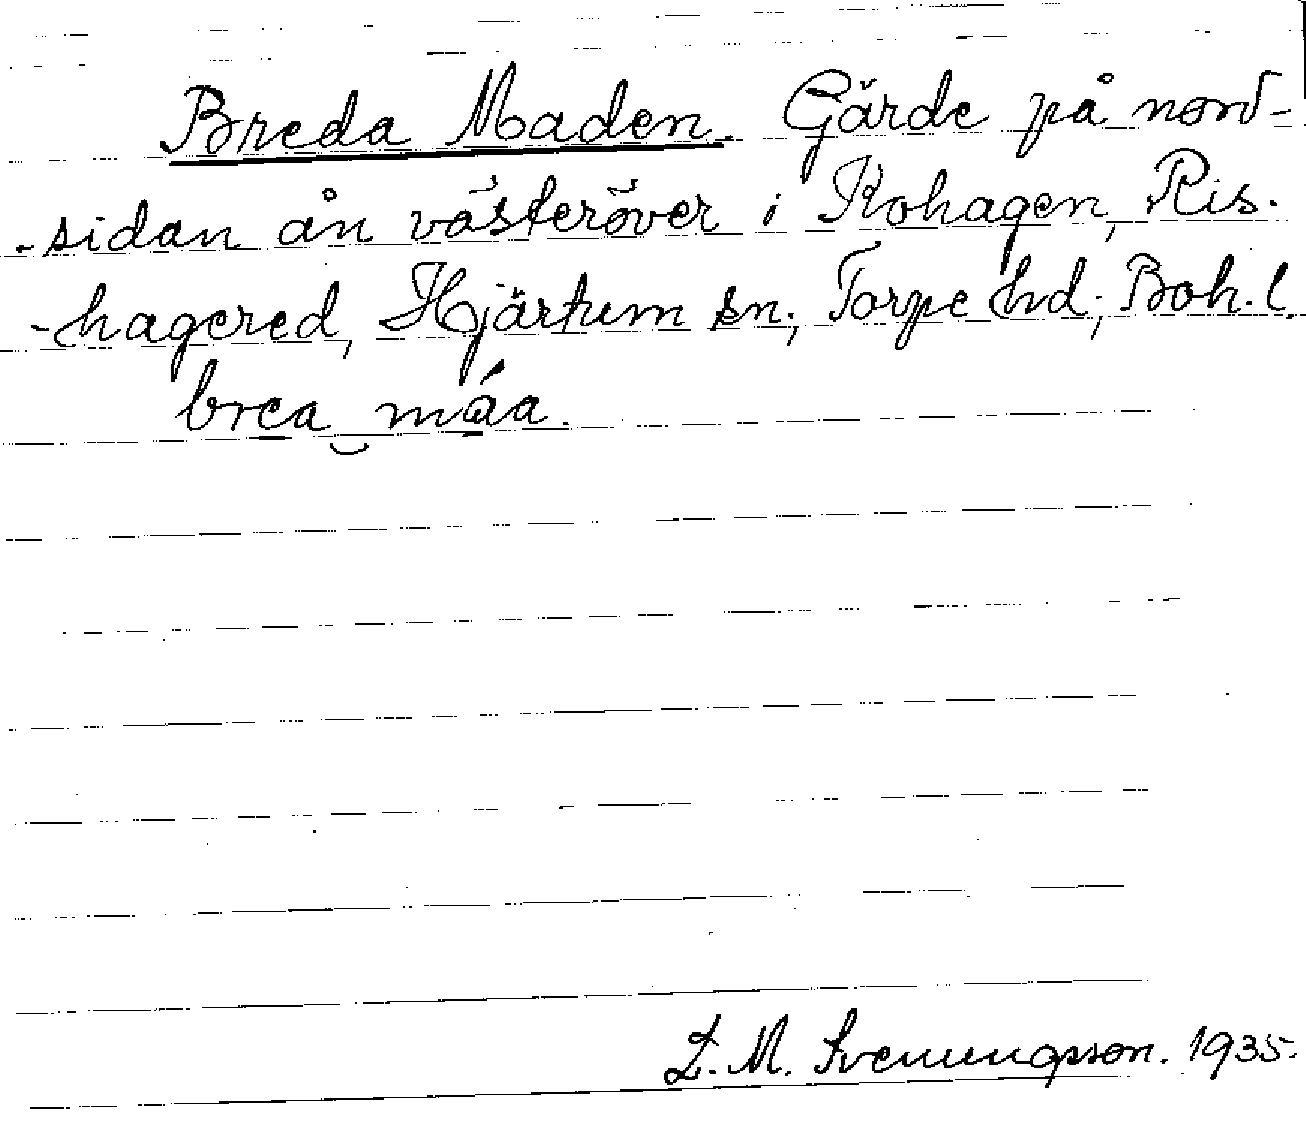 Breda Maden. Gärde på nord-
-sidan ån västeröver i Kohagen, Ris-
-hagered, Hjärtum sn., Torpe hd., Boh. l.
brea‿máa.
L. M. Svenungsson. 1935.